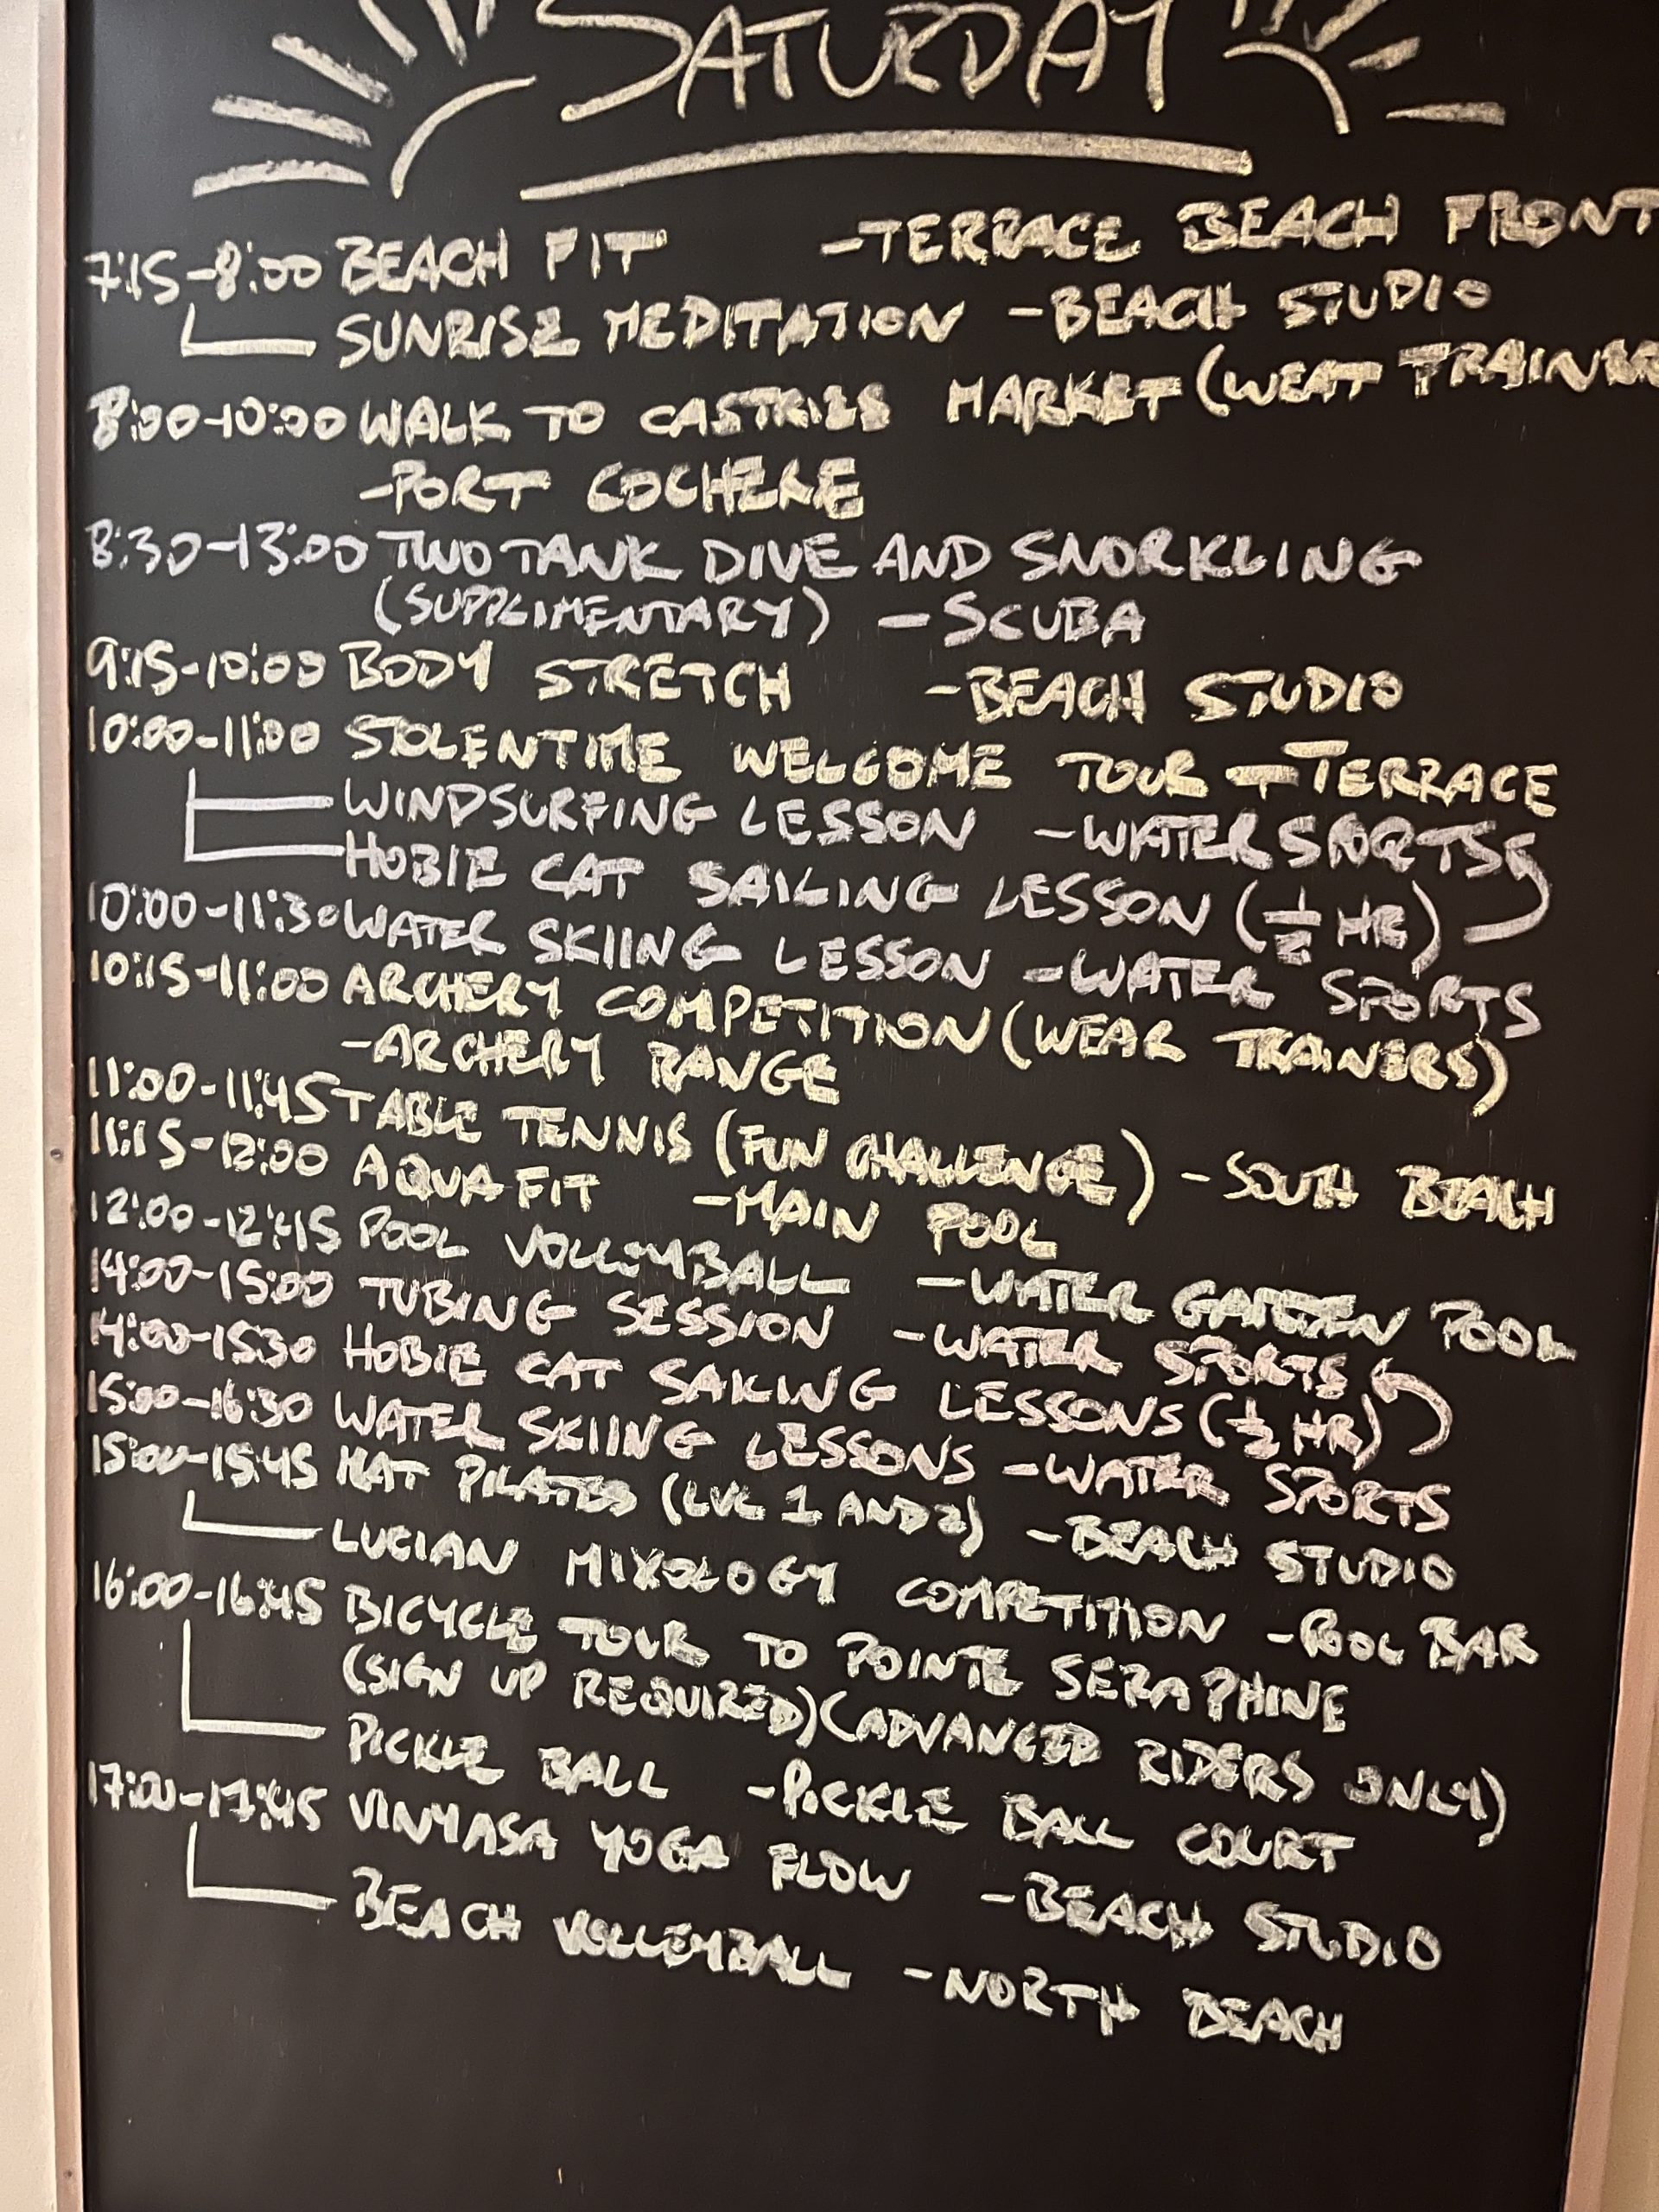 SATURDAY
7:15-8:00 BEACH FIT -TERRACE BEACH FRONT
SUNRISE MEDITATION -BEACH STUDIO
8:00-10:00 WALK TO CASTRIES MARKET (WEAT TRAINER
-PORT COCHERE
8:30-13:00 TWO TANK DIVE AND SNORKLING
(SUPPLIMENTARY) -SCUBA
9:15-10:00 BODY STRETCH -BEACH STUDIO
10:00-11:00 STOLENTIME WELCOME TOUR -TERRACE
WINDSURFING LESSON -WATER SPORTS
HOBIE CAT SAILING LESSON (1/2 HR)
10:00-11:30 WATER SKIING LESSON -WATER SPORTS
10:15-11:00 ARCHERY COMPETITION (WEAR TRAINERS)
-ARCHERY RANGE
11:00-11:45 TABLE TENNIS (FUN CHALLENGE) -SOUTH BEACH
11:15-12:00 AQUA FIT -MAIN POOL
12:00-12:45 POOL VOLLEYBALL -WATER GARDEN POOL
14:00-15:00 TUBING SESSION -WATER SPORTS
14:00-1530 HOBIE CAT SAILING LESSONS (1/2 HR)
15:00-16:30 WATER SKIING LESSONS -WATER SPORTS
15:00-15:45 MAT PILATES (LVL 1 AND 2) -BEACH STUDIO
LUCIAN MIXOLOGY COMPETITION -POOL BAR
16:00-16:45 BICYCLE TOUR TO POINTE SERAPHINE
(SIGN UP REQUIRED) (ADVANCED RIDERS ONLY)
PICKLE BALL -PICKLE BALL COURT
17:00-17:45 VINYASA YOGA FLOW -BEACH STUDIO
BEACH VOLLEYBALL -NORTH BEACH